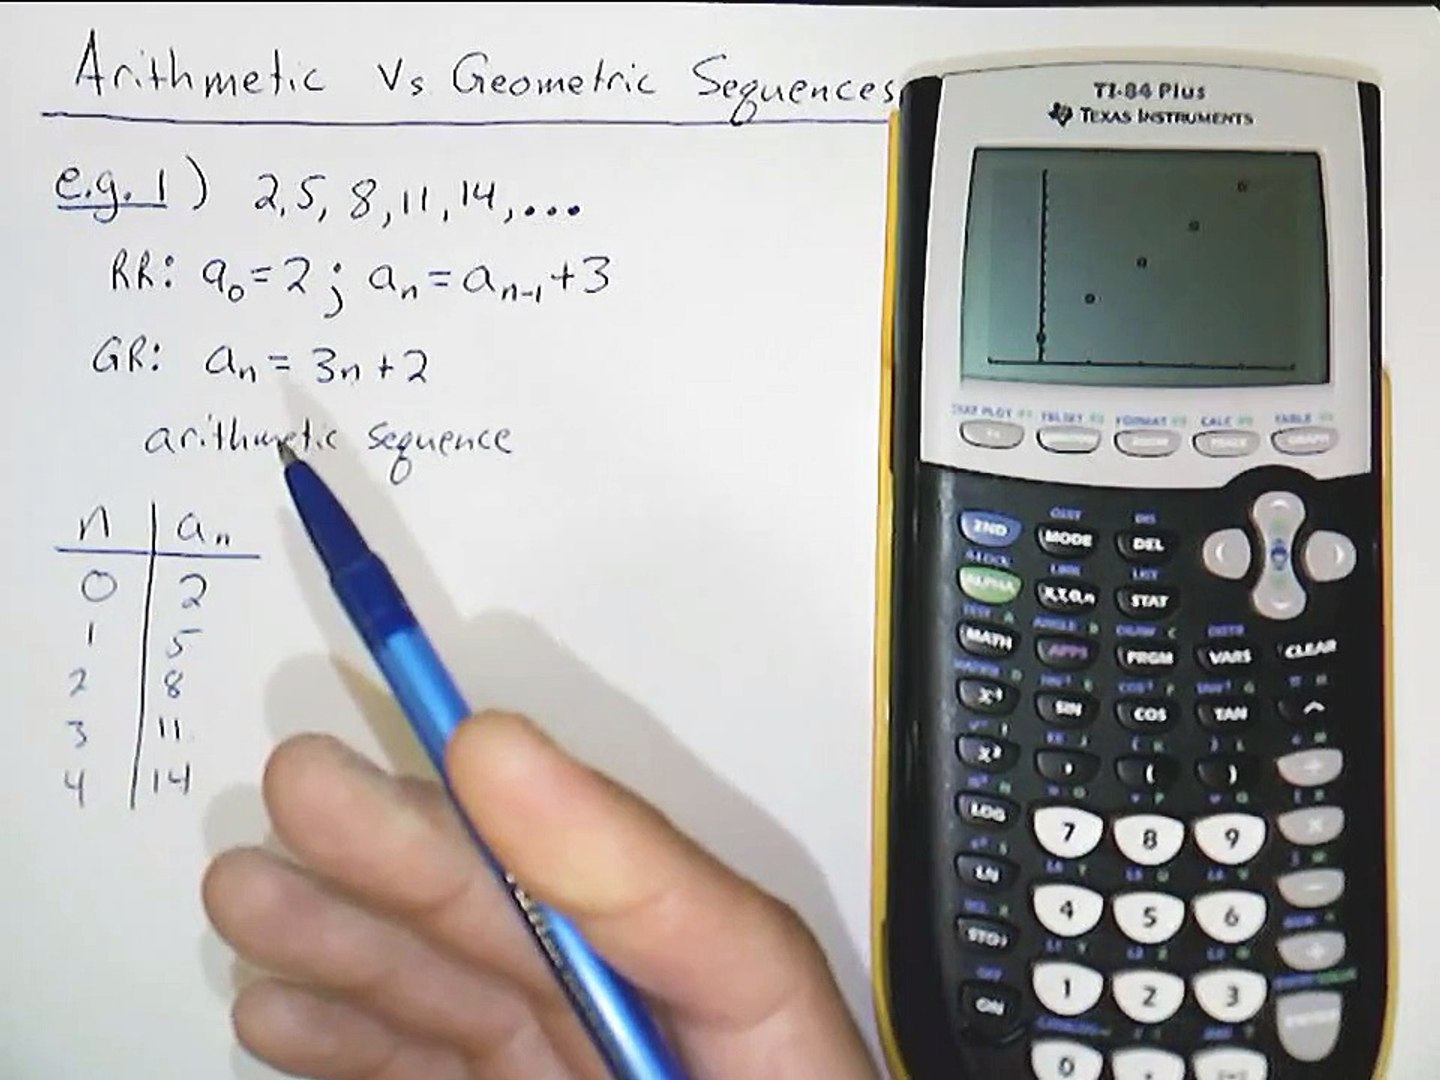 Arithmetic Vs Geometric Sequences
e.g. 1) 2, 5, 8, 11, 14, ...
RR: a₀ = 2 ; aₙ = aₙ₋₁ + 3
GR: aₙ = 3n + 2
arithmetic sequence
n aₙ
0 2
1 5
2 8
3 11
4 14
TI-84 Plus
TEXAS INSTRUMENTS
STAT PLOT F1 TBLSET F2 FORMAT F3 CALC F4 TABLE F5
2ND MODE DEL
ALPHA X,T,θ,n STAT
MATH APPS PRGM VARS CLEAR
X⁻¹ SIN COS TAN ^
X² , ( )
LOG 7 8 9 ×
LN 4 5 6 −
STO› 1 2 3 +
ON 0 .